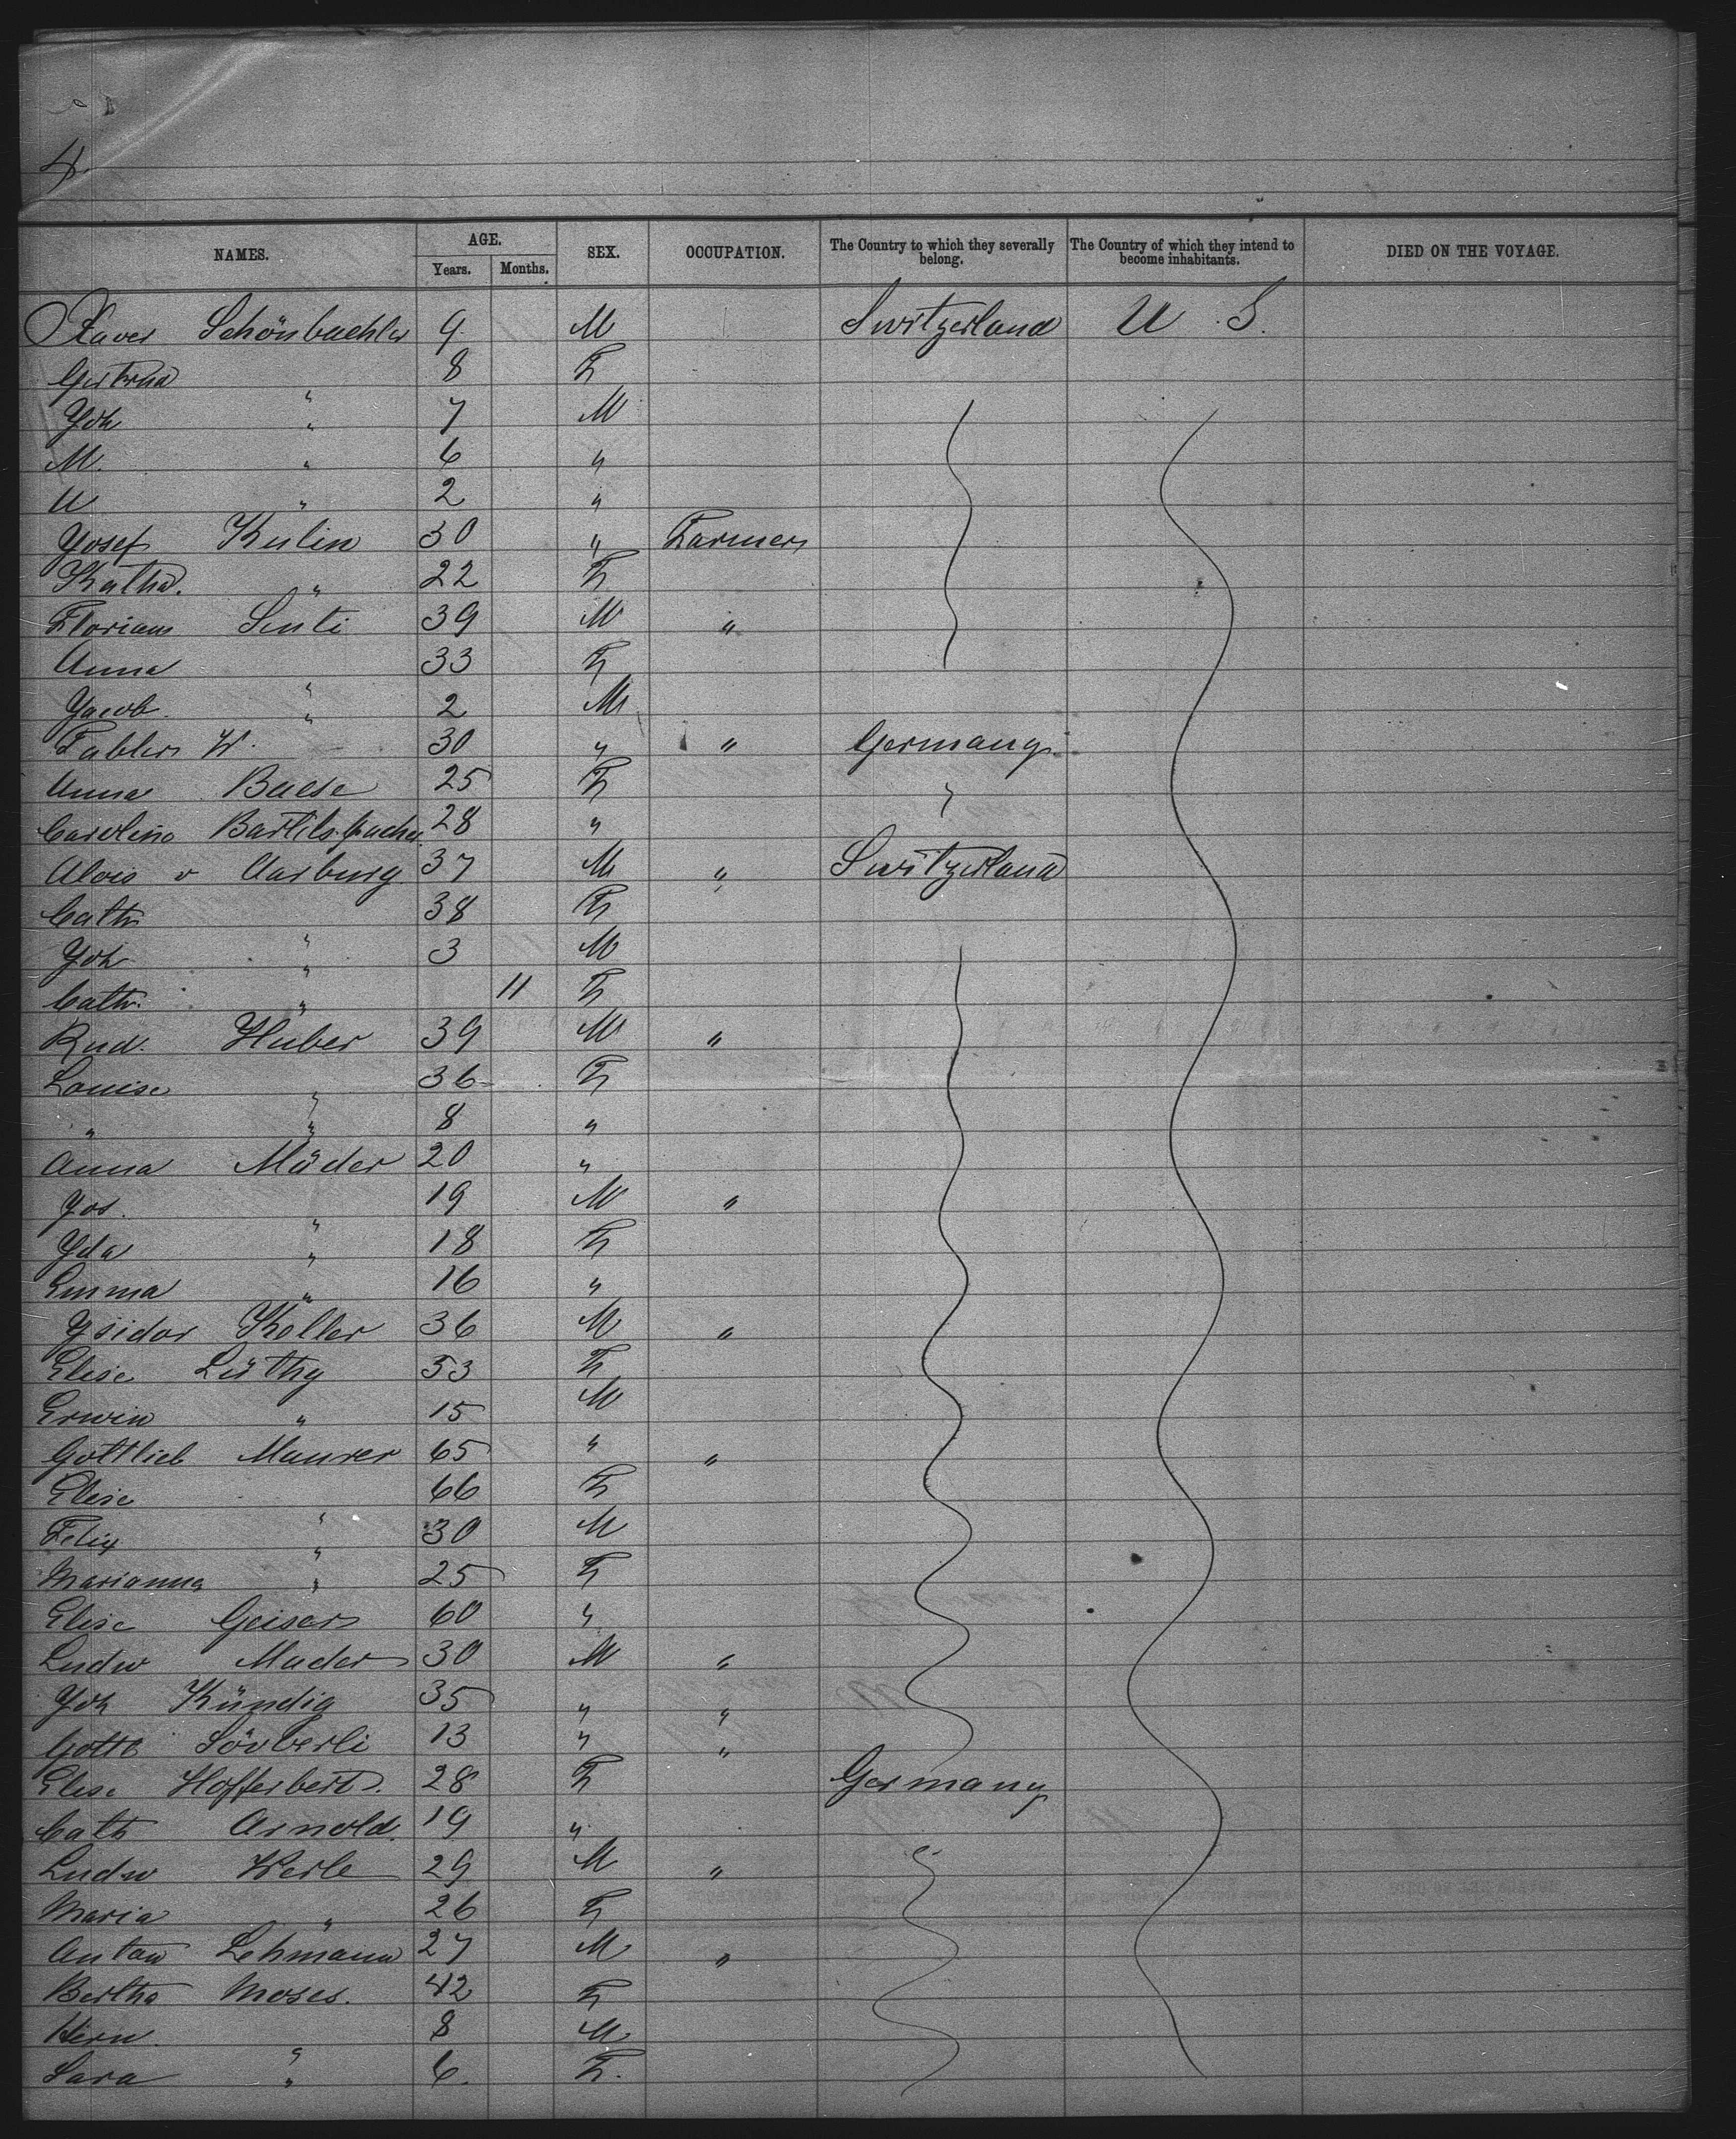 4
NAMES. AGE. Years. Months. SEX. OCCUPATION. The Country to which they severally belong. The Country of which they intend to become inhabitants. DIED ON THE VOYAGE.
Xaver Schönbachler 9 M Switzerland U. S.
Gertrud " 8 F
Joh " 7 M
M. " 6 "
U " 2 "
Josef Kulin 30 " Farmer
Katha. " 22 F
Florian Senti 39 M "
Anna " 33 F
Jacob " 2 M
Fabler W. 30 " " Germany
Anna Baese 25 F "
Caroline 28 "
Alois v Aarburg 37 M " Switzerland
Cath " 38 F
Joh " 3 M
Cath. " 11 F
Rud. Huber 39 M "
Louise " 36 F
" " 8 "
Anna Mäder 20 "
Jos. " 19 M "
Ida " 18 F
Emma " 16 "
Isidor Koller 36 M "
Elise Lüthy 53 F
Erwin " 15 M
Gottlieb Maurer 65 " "
Elise " 66 F
Felix " 30 M
Marianna " 25 F
Elise Geiser 60 "
Ludw Mader 30 M "
Joh Kündig 35 " "
Gottl 13 " "
Elise Hofferbert. 28 F Germany
Cath Arnold. 19 "
Ludw Werle 29 M "
Maria " 26 F
Anton Lehmann 27 M "
Bertha Moses. 42 F
Herm. " 8 M
Sara " 6. F.